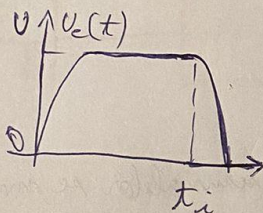 U U_c(t)
0
t_i